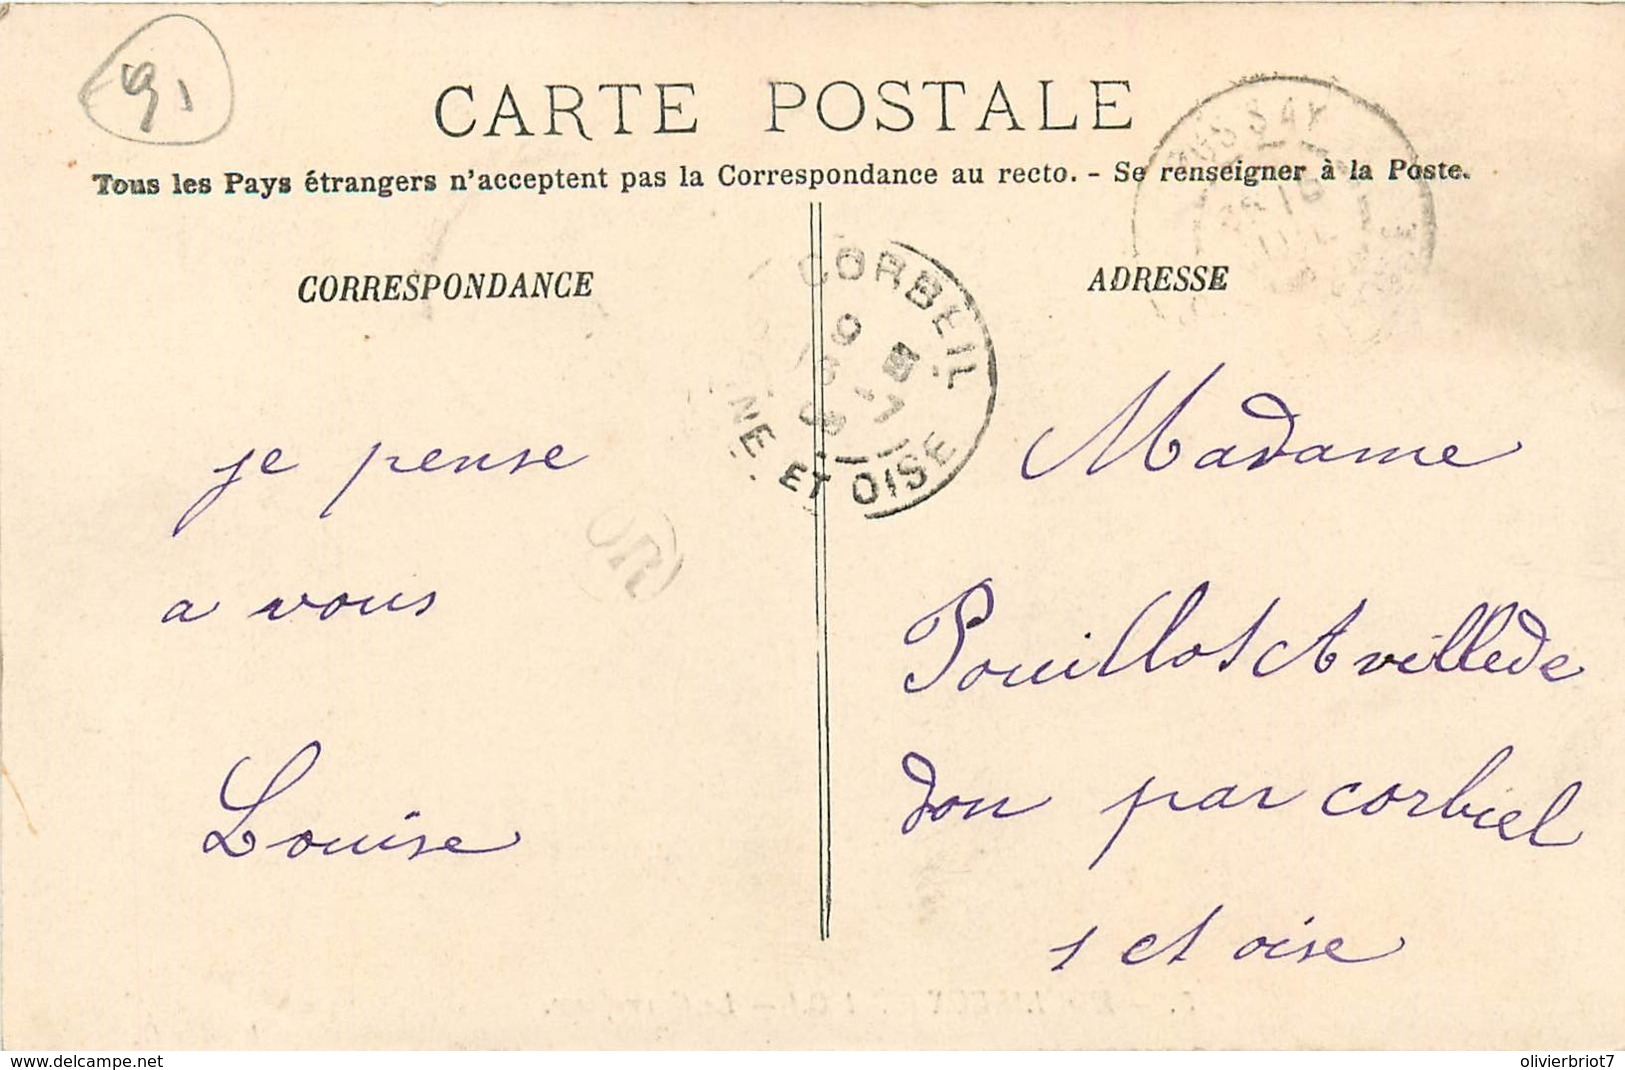 91
CARTE POSTALE
Tous les Pays étrangers n'acceptent pas la Correspondance au recto. - Se renseigner à la Poste.
CORRESPONDANCE
ADRESSE
CORBEIL
NE ET OISE
OR
je pense
a vous
Louise
Madame
Pouillot A villede
don par corbiel
s et oise
delcampe.net
olivierbriot7